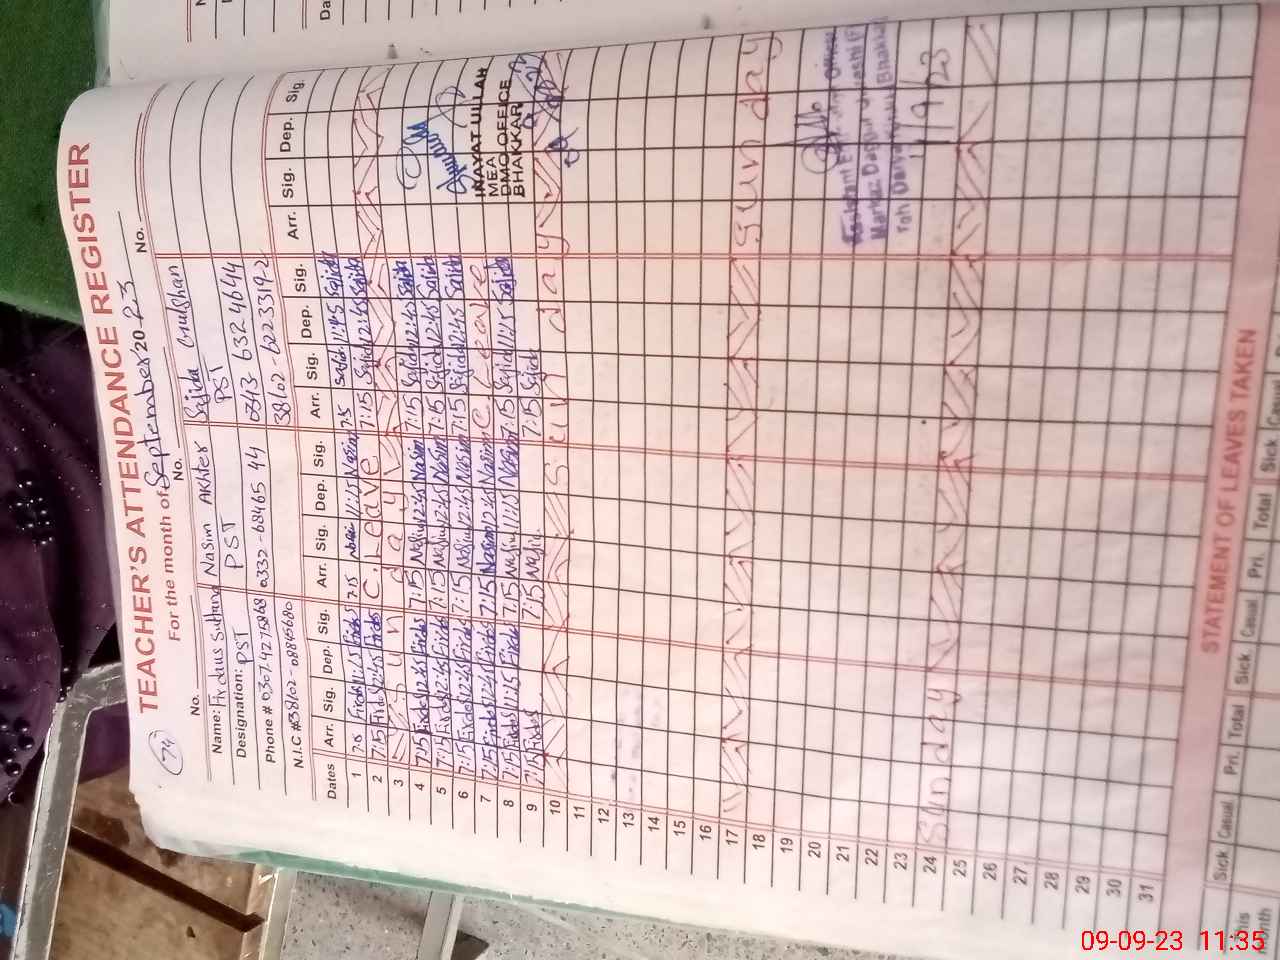 TEACHER'S ATTENDANCE REGISTER
For the month of September 2023
74
No. No. No.
Name: Firdaus Sultana Nasim Akhter Sajida Gulshan
Designation: PST PST PST
Phone # 0332-6846544 0343 6324644
N.I.C # 38102-08845680 38102-6223319-2
Dates Arr. Sig. Dep. Sig. Arr. Sig. Dep. Sig. Arr. Sig. Dep. Sig. Arr. Sig. Dep. Sig.
1 7:15 Firdos 11:15 Firdos 7:15 Nasim 11:15 Nasim 7:15 Sajida 11:45 Sajida
2 7:15 Firdos 12:45 Firdos C. Leave 7:15 Sajida 12:45 Sajida
3 Sunday
4 7:15 Firdos 12:45 Firdos 7:15 Nasim 12:45 Nasim 7:15 Sajida 12:45 Sajida
5 7:15 Firdos 12:45 Firdos 7:15 Nasim 12:45 Nasim 7:15 Sajida 12:45 Sajida
6 7:15 Firdos 12:45 Firdos 7:15 Nasim 12:45 Nasim 7:15 Sajida 12:45 Sajida
7 7:15 Firdos 12:45 Firdos 7:15 Nasim 12:45 Nasim C. Leave
8 7:15 Firdos 11:15 Firdos 7:15 Nasim 11:15 Nasim 7:15 Sajida 11:15 Sajida
9 7:15 Firdos 7:15 Nasim 7:15 Sajida
10 Sunday
11
12
13
14
15
16
17 Sunday
18
19
20
21
22
23
24 Sunday
25
26
27
28
29
30
31
INAYAT ULLAH
MEA
DMO OFFICE
BHAKKAR
Markaz
1/9/23
STATEMENT OF LEAVES TAKEN
Sick Casual Pri. Total Sick Casual Pri. Total Sick Casual
This
month
09-09-23 11:35